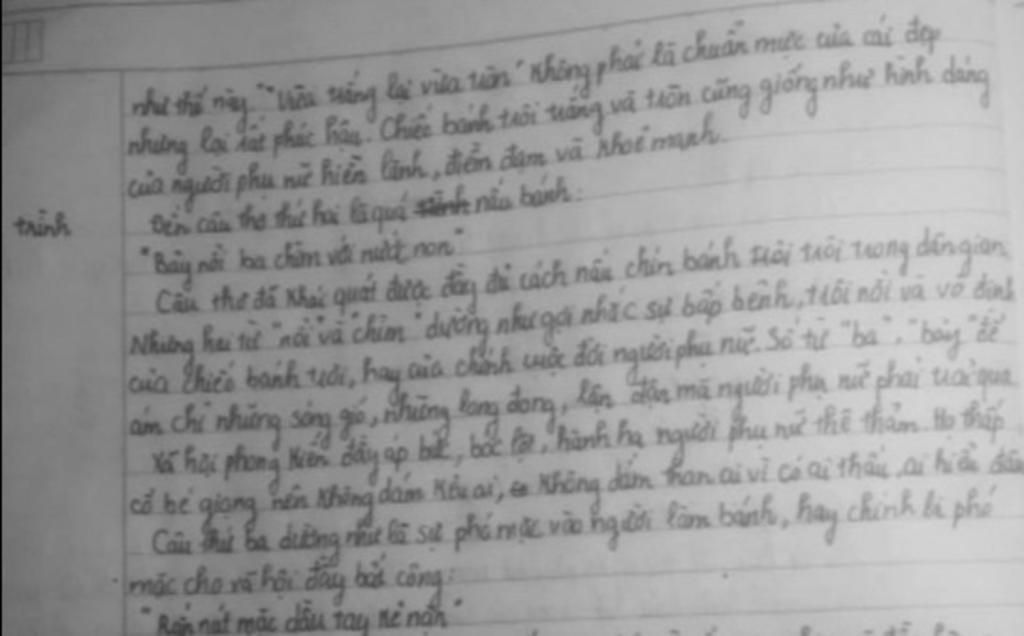 như thế này. "Vừa trắng lại vừa tròn" không phải là chuẩn mực của cái đẹp
nhưng lại rất phúc hậu. Chiếc bánh trôi trắng và tròn cũng giống như hình dáng
của người phụ nữ hiền lành, điềm đạm và khoẻ mạnh.
Đến câu thơ thứ hai là quá nấu bánh:
trình
"Bảy nổi ba chìm với nước non"
Câu thơ đã khái quát được đầy đủ cách nấu chín bánh trôi trôi trong dân gian.
Nhưng hai từ "nổi" và "chìm" dường như gợi nhắc sự bấp bênh, trôi nổi và vô định
của chiếc bánh trôi, hay của chính cuộc đời người phụ nữ. Số từ "ba", "bảy" để
ám chỉ những sóng gió, những long đong, lận đận mà người phụ nữ phải trải qua
Xã hội phong kiến đầy áp bức, bóc lột, hành hạ người phụ nữ thê thảm. Họ thấp
cổ bé giọng nên không dám kêu ai, không dám than ai vì có ai thấu, ai hiểu đâu
Câu thứ ba dường như là sự phó mặc vào người làm bánh, hay chính là phó
mặc cho xã hội đầy bất công:
"Rắn nát mặc dầu tay kẻ nặn"